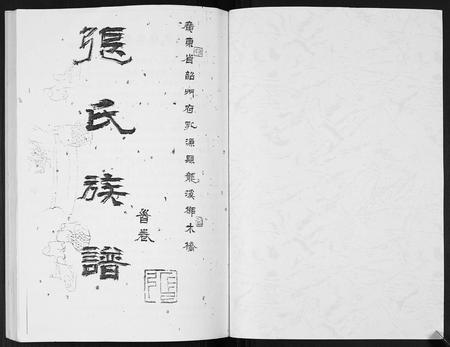 廣東省韶州府乳源縣龍溪鄉木橋
首卷
張氏族譜